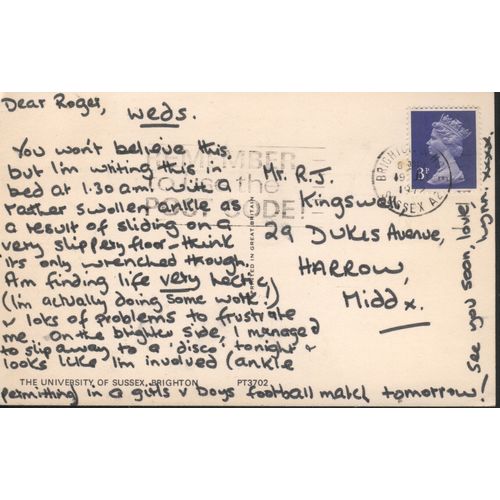 Dear Roger,
Weds.
You won't believe this,
but I'm writing this in
bed at 1.30 am with a
rather swollen ankle as
a result of sliding on a
very slippery floor - think
it's only wrenched though.
Am finding life very hectic
(I'm actually doing some work!)
& lots of problems to frustrate
me. On the brighter side, I managed
to slip away to a 'disco' tonight &
looks like I'm involved (ankle
permitting in a girls v boys football match tomorrow!
See you soon, love
Lynn. xxxx
Mr. R.J.
Kingswell
29 Dukes Avenue,
HARROW,
Middx.
REMEMBER
to use the
POST CODE!
BRIGHTON
SUSSEX A2
3P
PRINTED IN GREAT BRITAIN
THE UNIVERSITY OF SUSSEX, BRIGHTON PT3702